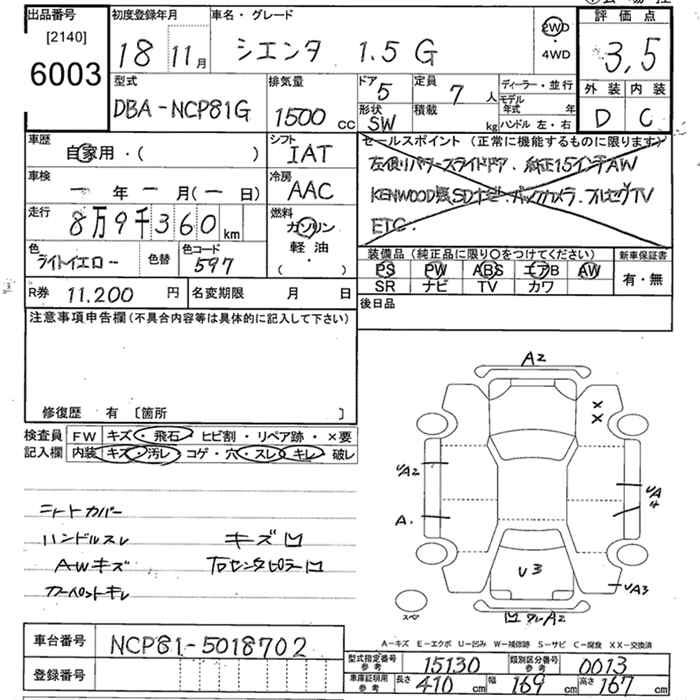 出品番号 [2140] 6003
初度登録年月 18年 11月
車名・グレード シエンタ 1.5 G
2WD・4WD
評価点 3,5
外装 D 内装 C
型式 DBA-NCP81G
排気量 1500 cc
ドア 5 定員 7人
形状 SW 積載 kg
ディーラー・並行
モデル年式 年
ハンドル 左・右
車歴 自家用・( )
シフト IAT
車検 ー年ー月(ー日)
冷房 AAC
走行 8万9千360km
燃料 ガソリン 軽油・( )
色 ライトイエロー 色替 色コード 597
R券 11.200 円 名変期限 月 日
セールスポイント(正常に機能するものに限ります)
左側パワースライドドア.純正15インチAW
KENWOOD製SDナビ・バックカメラ・フルセグTV
ETC
装備品(純正品に限り○をつけてください) 新車保証書
PS PW ABS エアB AW 有・無
SR ナビ TV カワ
後日品
注意事項申告欄(不具合内容等は具体的に記入して下さい)
修復歴 有 〔箇所 〕
検査員記入欄
FW キズ・飛石・ヒビ割・リペア跡・×要
内装 キズ・汚レ・コゲ・穴・スレ・キレ・破レ
シートカバー
ハンドルスレ キズ凹
AWキズ 右センタピラー凹
カーペットキレ
A2
××
UA2
A.
UA4
U3
UA3
A2
スペ
A-キズ E-エクボ U-凹み W-補修跡 S-サビ C-腐食 XX-交換済
車台番号 NCP81-5018702
登録番号
型式指定番号参考 15130 類別区分番号参考 0013
車庫証明用参考 長さ 410 cm 幅 169 cm 高さ 167 cm